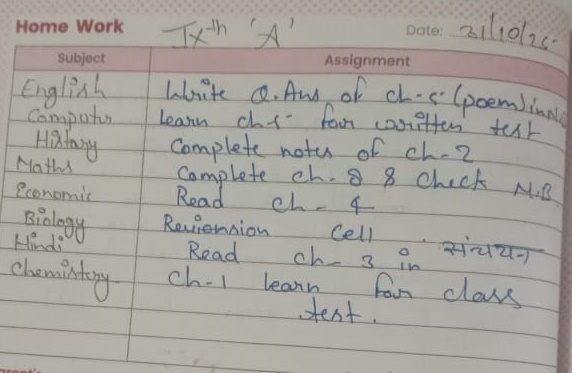 Home Work IXth 'A' Date: 21/10/25
Subject Assignment
English Write Q.Ans of ch-5 (poem) in N
Computer learn ch-5 for written test
History Complete notes of ch-2
Maths Complete ch. 8 & Check N.B
Economic Read ch - 4
Biology Revionsion Cell
Hindi Read ch - 3 in संचयन
Chemistry ch-1 learn for class
test.